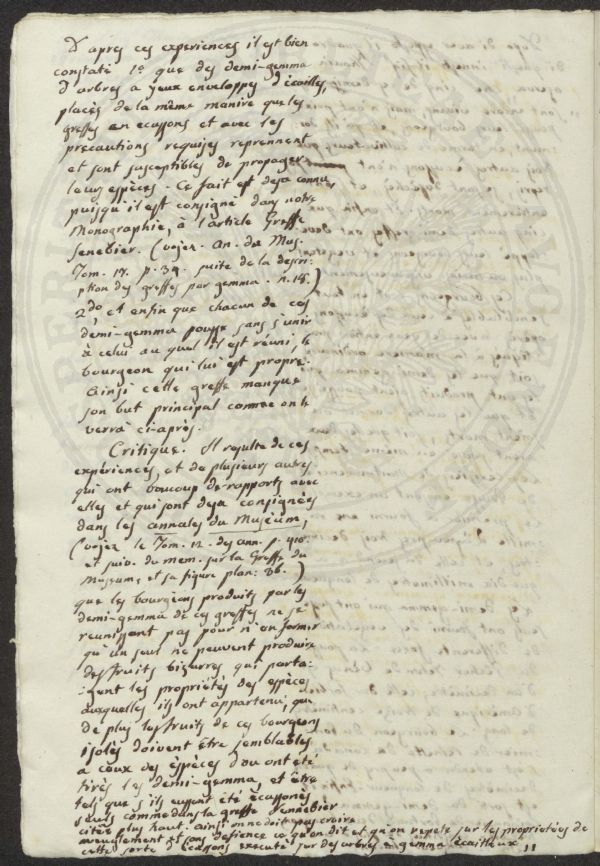 D'apres ces experiences il est bien
constaté 1.º que des demi-gemma
d'arbres a yeux enveloppes d'écailles,
placés de la même manire que les
greffes en ecussons et avec les
precautions requises reprennent
et sont susceptibles de propager
leurs espèces. Ce fait est deja connu,
puisqu'il est consigné dans notre
Monographie, à l'article Greffe
Senebier. (voyez. An. du Mus.
Tom. 17. p. 39. suite de la descri-
ption des greffes par gemma. n. 18.)
2.do et enfin que chacun de ces
demi-gemma pousse sans s'unir
à celui au quel il est réuni, le
bourgeon qui lui est propre.
Ainsi cette greffe manque
son but principal comme on le
verra ci-après.
Critique. Il resulte de ces
expériences, et de plusieurs autres
qui ont boucoup de rapports avec
elles et qui sont deja consignées
dans les annales du Muséum,
(voyez le Tom. 12. des ann. p. 410.
et suiv. du mem. sur la Greffe du
Museum, et sa figure plan:)
que les bourgeons produits par les
demi-gemma de ces greffes ne se
reunissant pas pour n'en former
qu'un seul ne peuvent produire
des fruits bizarres qui parta-
:gent les propriétés des espèces
auxquelles ils ont appartenu, que
de plus les fruits de ces bourgeons
isolés doivent être semblables
a ceux des éspèces d'ou ont été
tirés les demi-gemma, et être
tels que s'ils eussent été ecussonés
seuls comme dans la greffe Sennebier
citée plus haut. ainsi on ne doit pas croire
aveuglement et sans defience ce qu'on dit et qu'on repete sur les proprietées de
cette sorte ecussons executé sur des arbres a gemma écailleux ,,